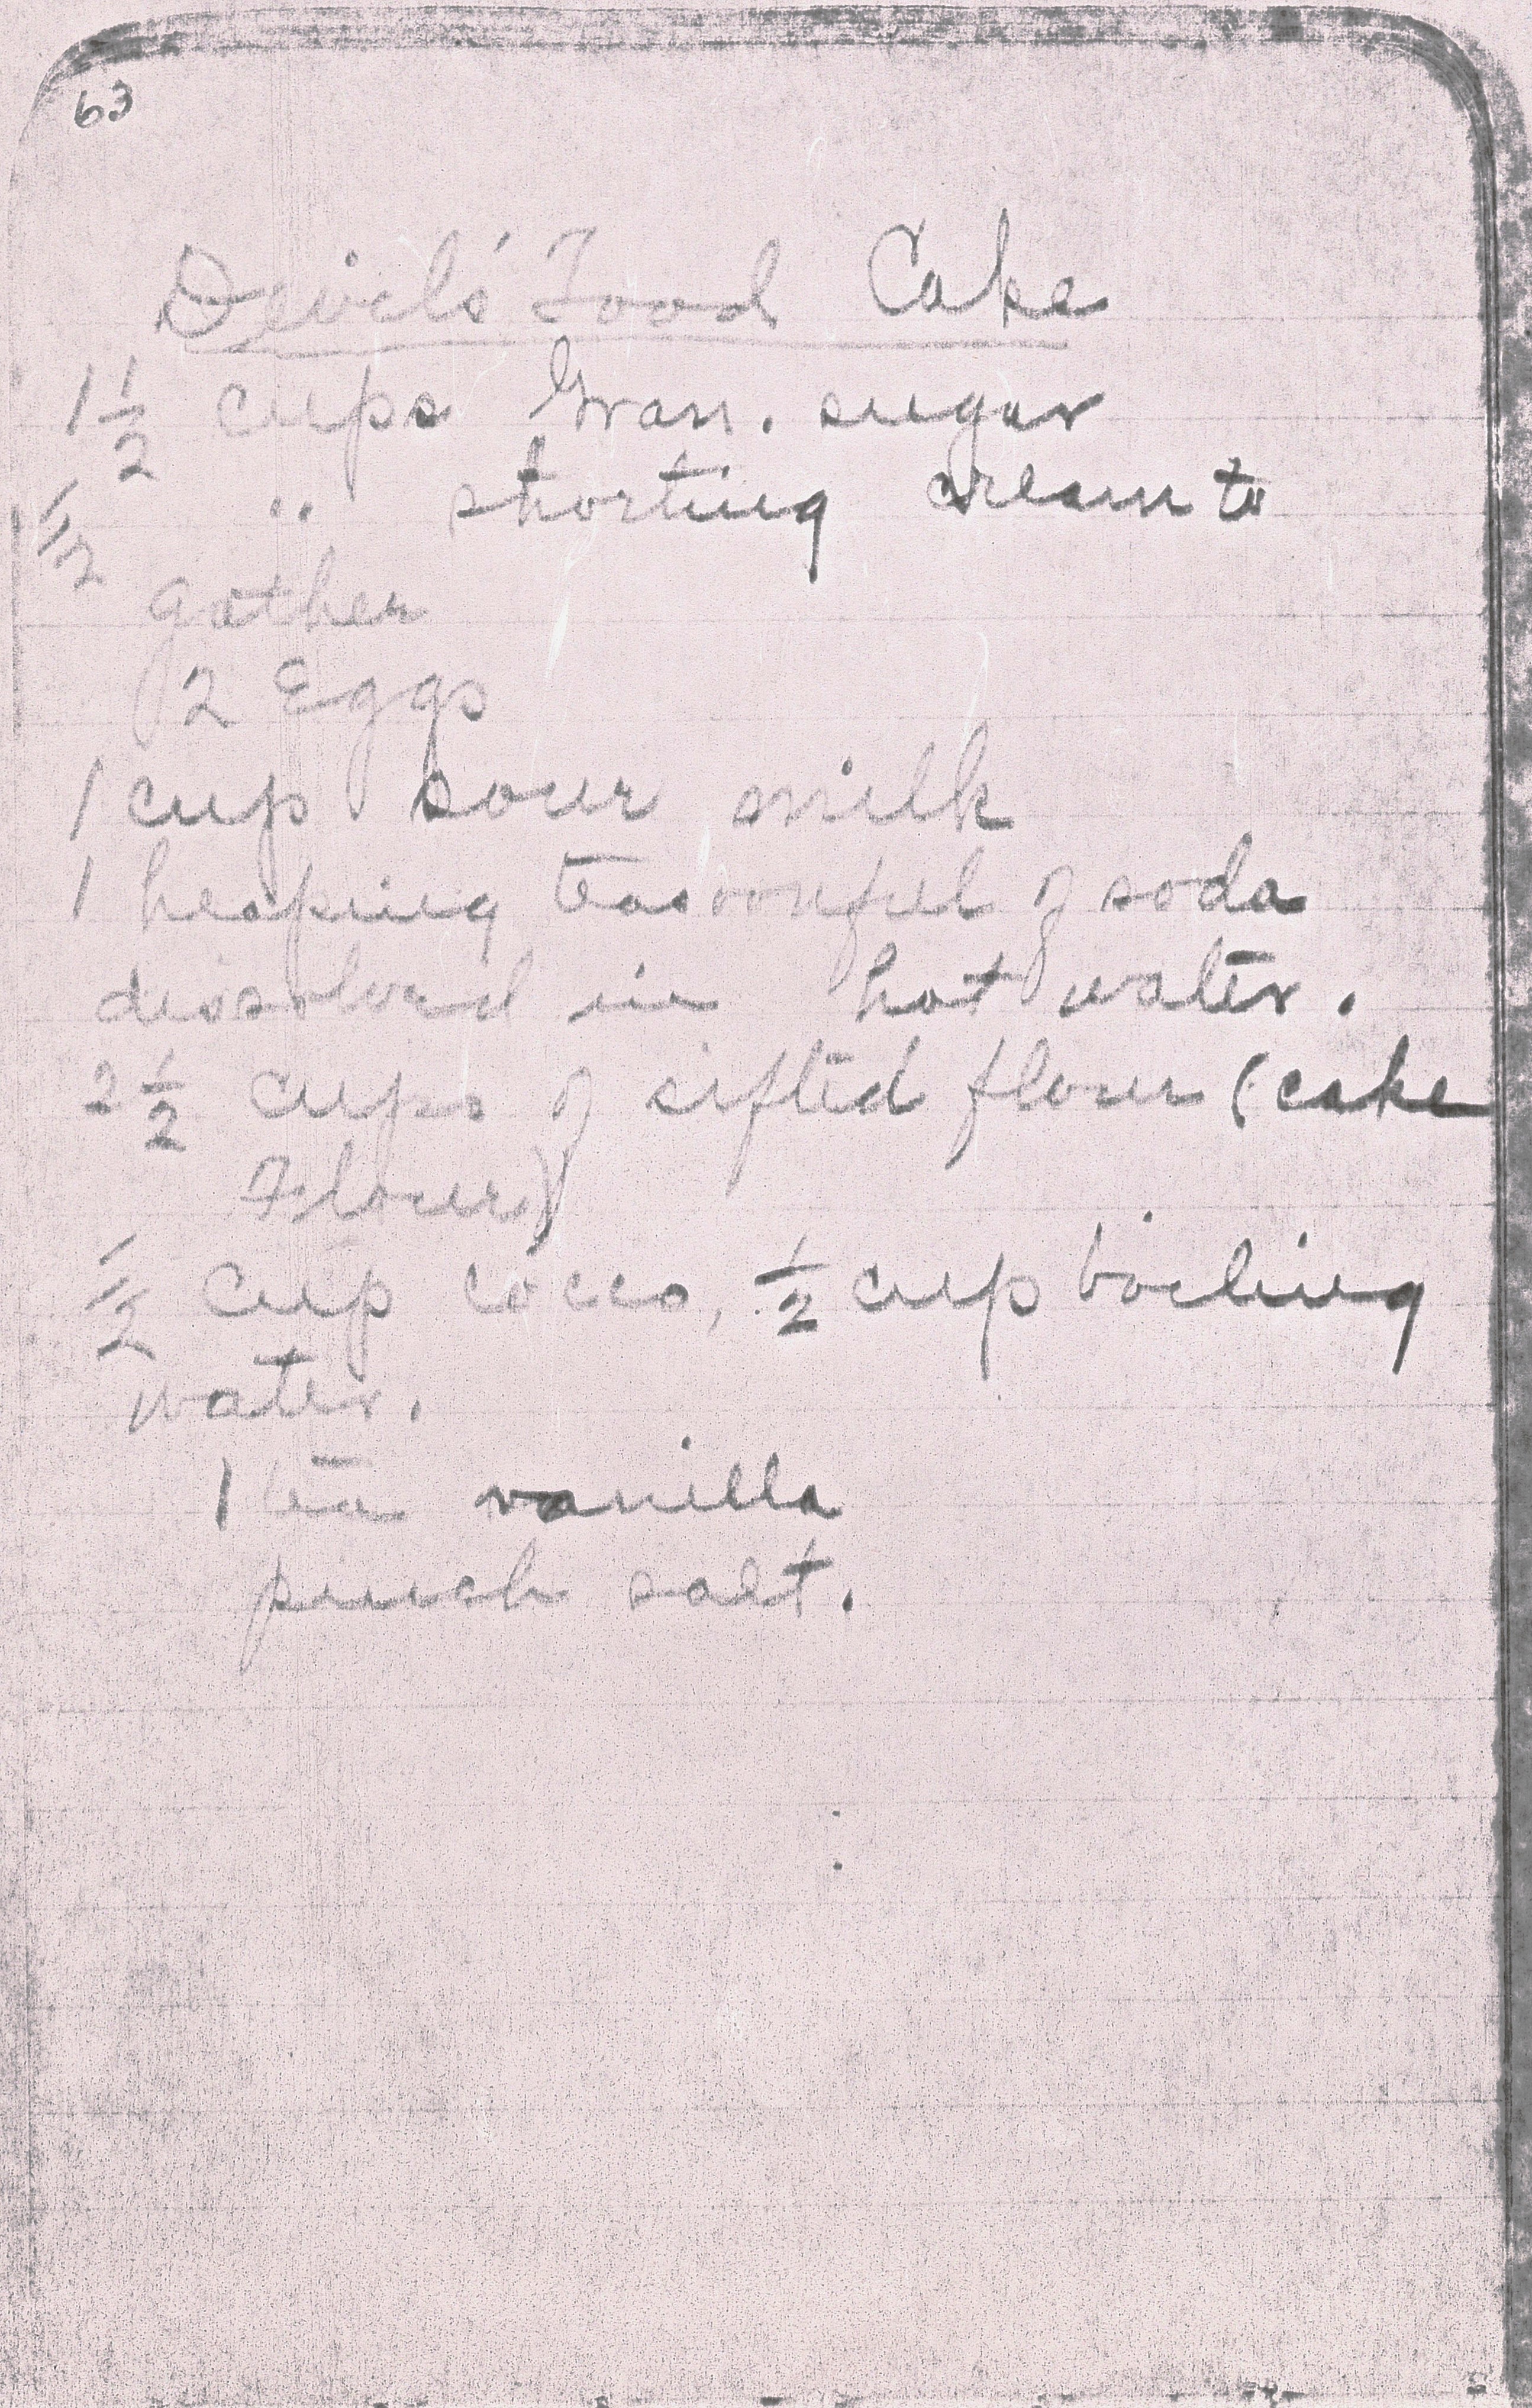 63
Devils' Food Cake
1 1/2 cups Gran. sugar
1/2 " shorting cream to
gather
2 Eggs
1 cup sour milk
1 heaping teasoonful of soda
dissolved in hot water.
2 1/2 cups of sifted flour (cake
Flour)
1/2 cup cocco, 1/2 cup boiling
water.
1 tea vanilla
pinch salt.